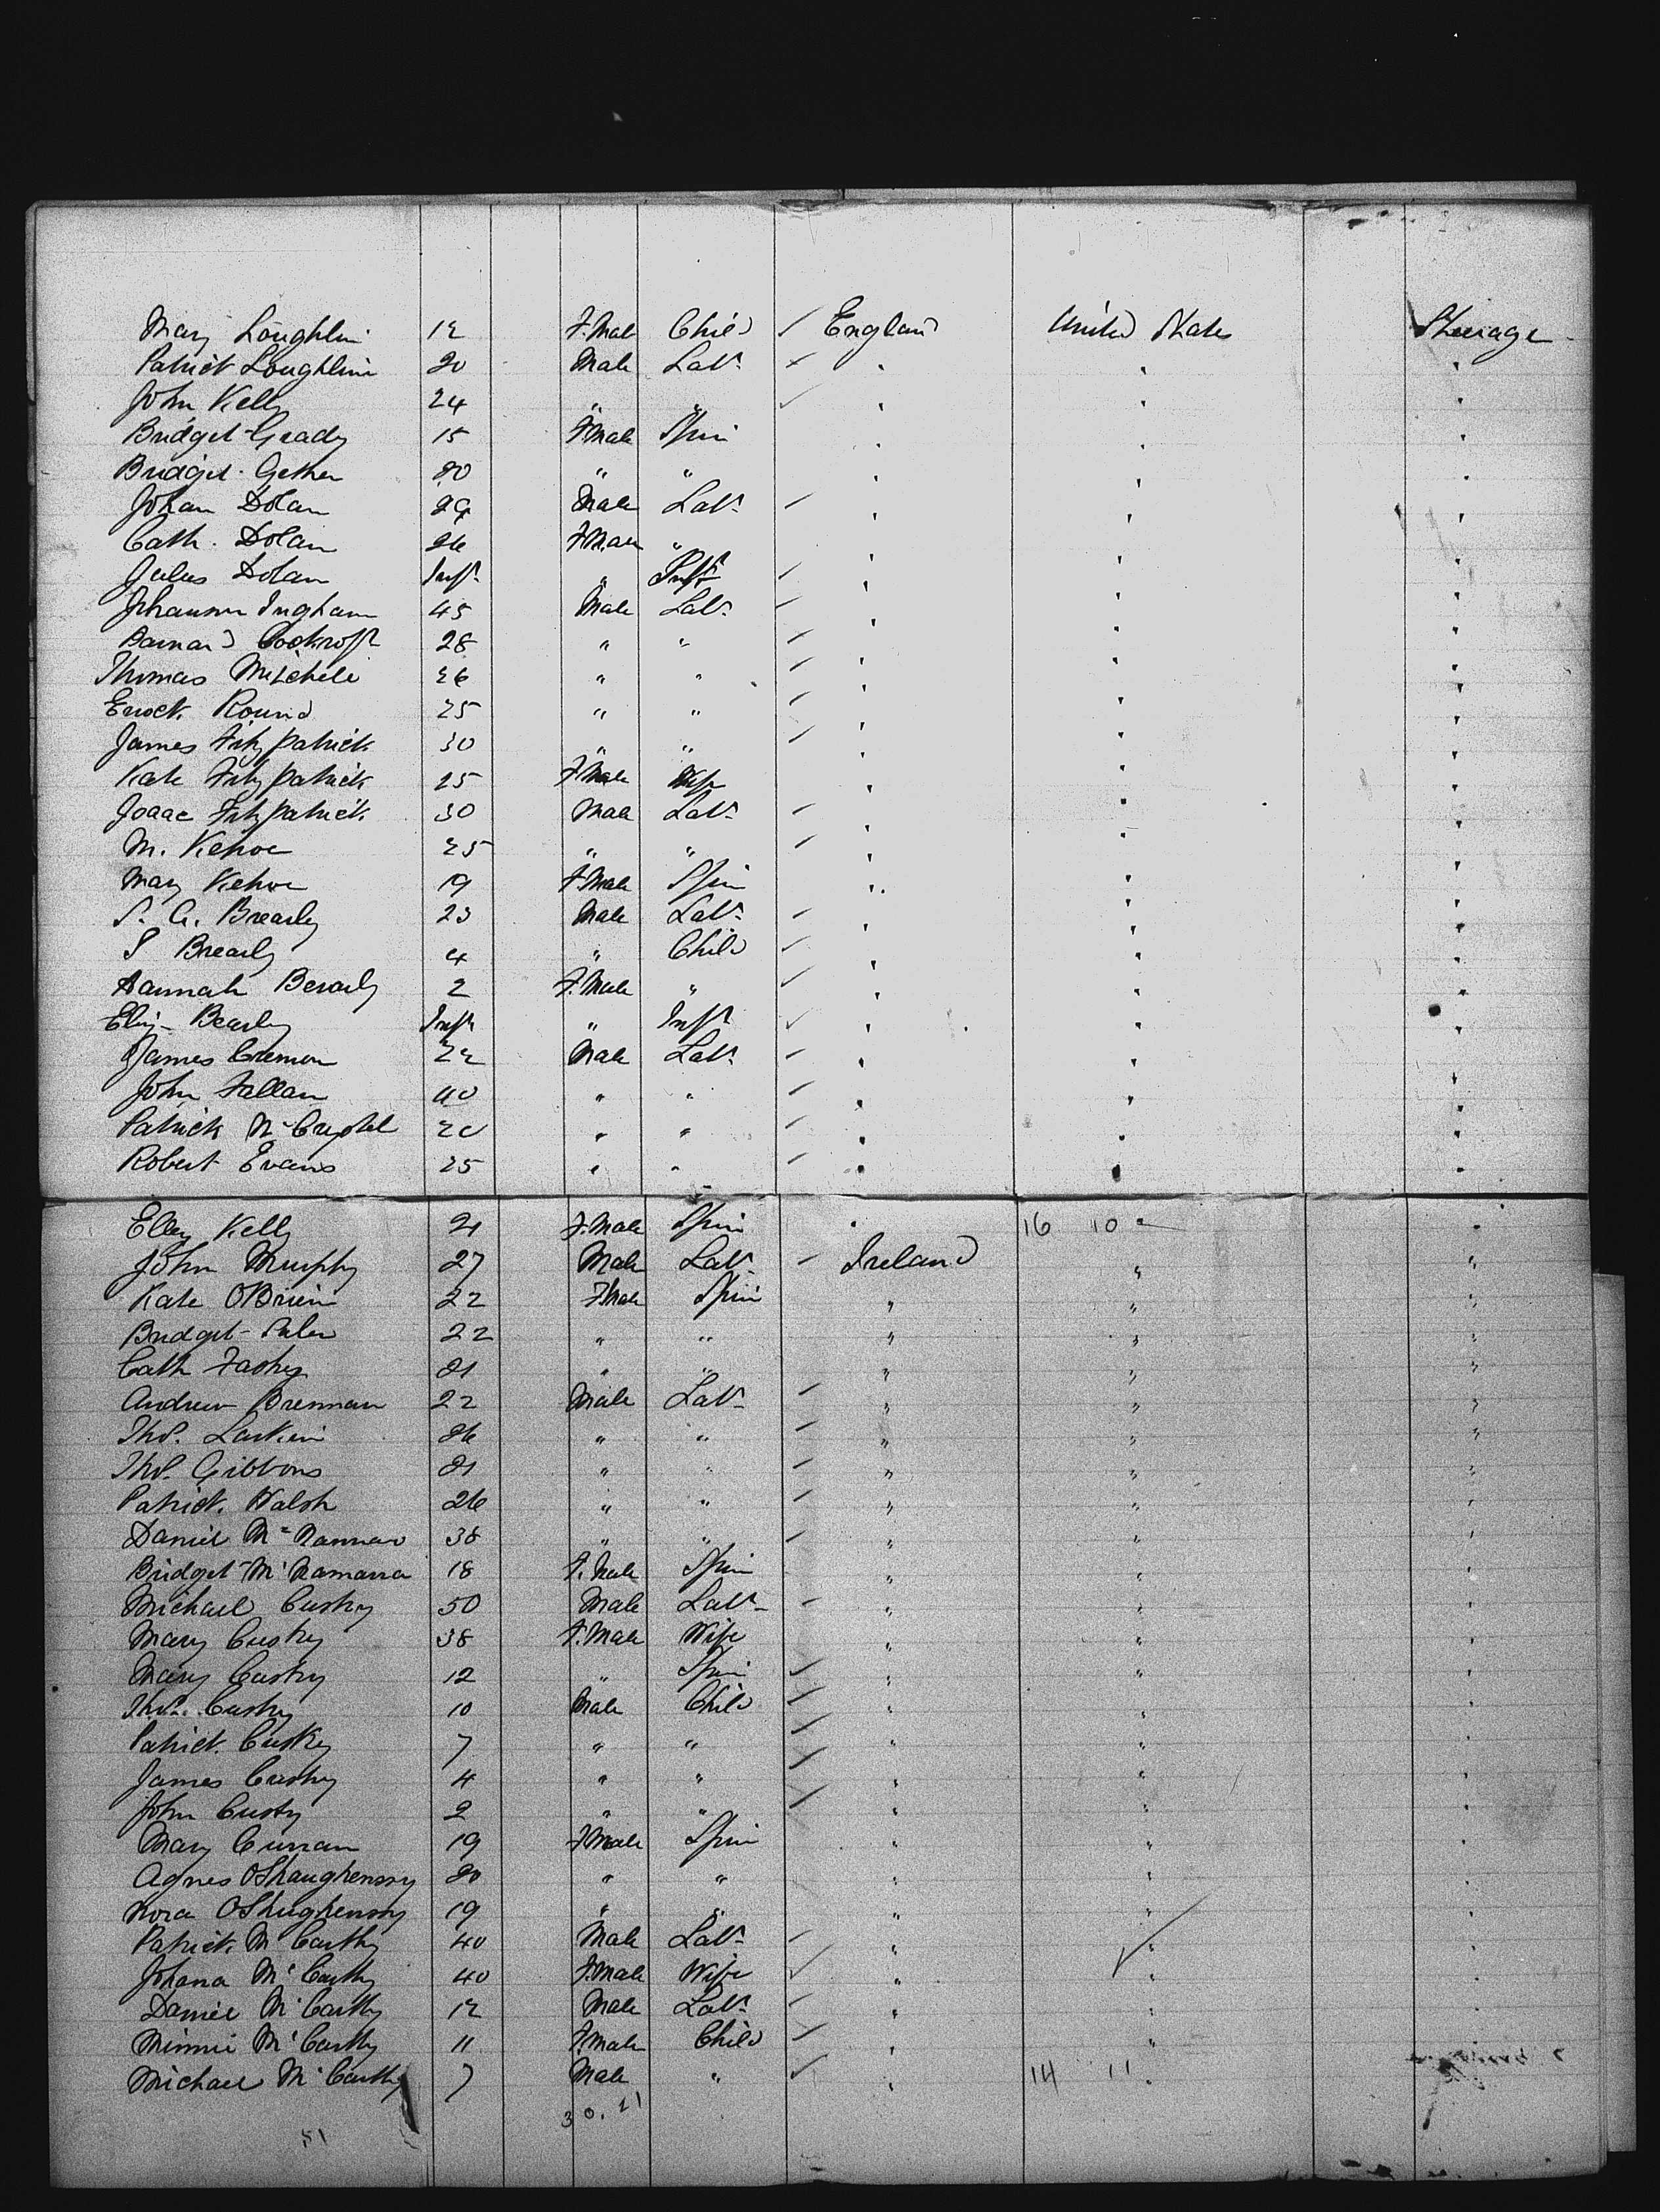 Mary Loughlin 12 F.Male Child ✓ England United States Steerage
Patrick Loughlin 20 Male Labr ✓ " " "
John Kelly 24 " " ✓ " " "
Bridget Grady 15 F.Male Spin " " "
Bridget 20 " " " " "
Johan Dolan 29 Male Labr ✓ " " "
Cath. Dolan 26 F.Male " " " "
Julus Dolan Inft " Inft ✓ " " "
Ingham 45 Male Labr ✓ " " "
Barnard Cockroft 28 " " ✓ " "
Thomas Mitchell 26 " " ✓ " " "
Enock Round 25 " " ✓ " " "
James Fitzpatrick 30 " " ✓ " " "
Kate Fitzpatrick 25 F.Male Wife " " "
Isaac Fitzpatrick 30 Male Labr ✓ " " "
M. Kehoe 25 " " ✓ " " "
Mary Kehoe 19 F.Male Spin " " "
S. A. Brearly 23 Male Labr ✓ " " "
S Brearly 4 " Child ✓ " " "
Hannah Berarly 2 F.Male " ✓ " " "
Eliz Bearly Inft " Inft ✓ " " "
James Cremon 22 Male Labr ✓ " " "
John Fallan 40 " " ✓ " " "
Patrick 20 " " ✓ " " "
Robert Evans 25 " " ✓ " " "
Ellen Kelly 21 F.Male Spin " 16 10 " "
John Murphy 27 Male Labr ✓ Ireland " "
Kate OBrien 22 F.Male Spin " " "
Bridget 22 " " " " "
Cath 21 " " " " "
Andrew Brennan 22 Male Labr ✓ " " "
Thos. Larkin 26 " " ✓ " " "
Thos. Gibbons 21 " " ✓ " " "
Patrick Walsh 26 " " ✓ " " "
Daniel 38 " " ✓ " " "
Bridget McNamarra 18 F.Male Spin " " "
Michael Cushy 50 Male Labr ✓ " " "
Mary Cushy 38 F.Male Wife " " "
Mary Cushy 12 " Spin ✓ " " "
Thos. Cushy 10 Male Child ✓ " " "
Patrick Cuskey 7 " " ✓ " " "
James Cushy 4 " " ✓ " " "
John Custy 2 " " ✓ " " "
Mary Curran 19 F.Male Spin " " "
Agnes OShaughenssy 20 " " " " "
Nora OShughenssy 19 " " " " "
Patrick McCarthy 40 Male Labr ✓ " " "
Johana McCarthy 40 F.Male Wife ✓ " " "
Daniel McCarthy 12 Male Labr ✓ " " "
Minnie McCarthy 11 F.Male Child ✓ " "
Michael McCarthy 7 Male " ✓ " 14 11 "
30. 21
51